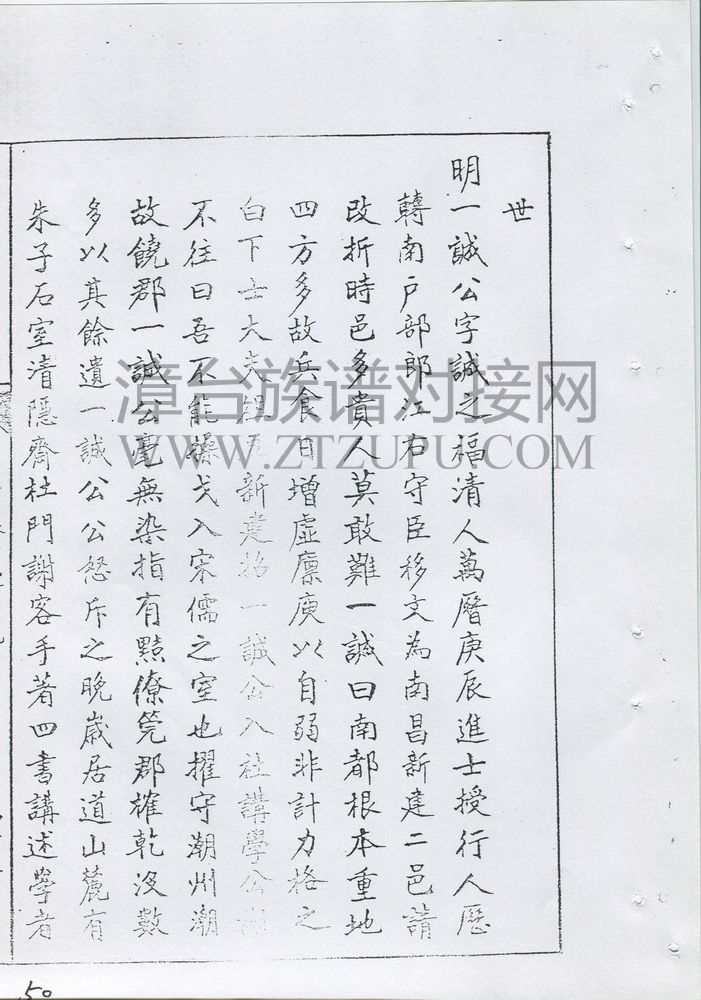 世
明一誠公字誠之福清人萬曆庚辰進士授行人歷
轉南戶部郎江右守臣移文為南昌新建二邑請
改折時邑多貴人莫敢難一誠曰南都根本重地
四方多故兵食日增虛廪庾以自弱非計力格之
白下士大夫組五新建招一誠公入社講學公謝
不往曰吾不能操戈入宋儒之室也擢守潮州潮
故饒郡一誠公毫無染指有黠僚筦郡榷乾没數
多以其餘遺一誠公公怒斥之晚歲居道山麓有
朱子石室清隱齋杜門謝客手著四書講述學者
漳台族谱对接网
WWW.ZTZUPU.COM
50